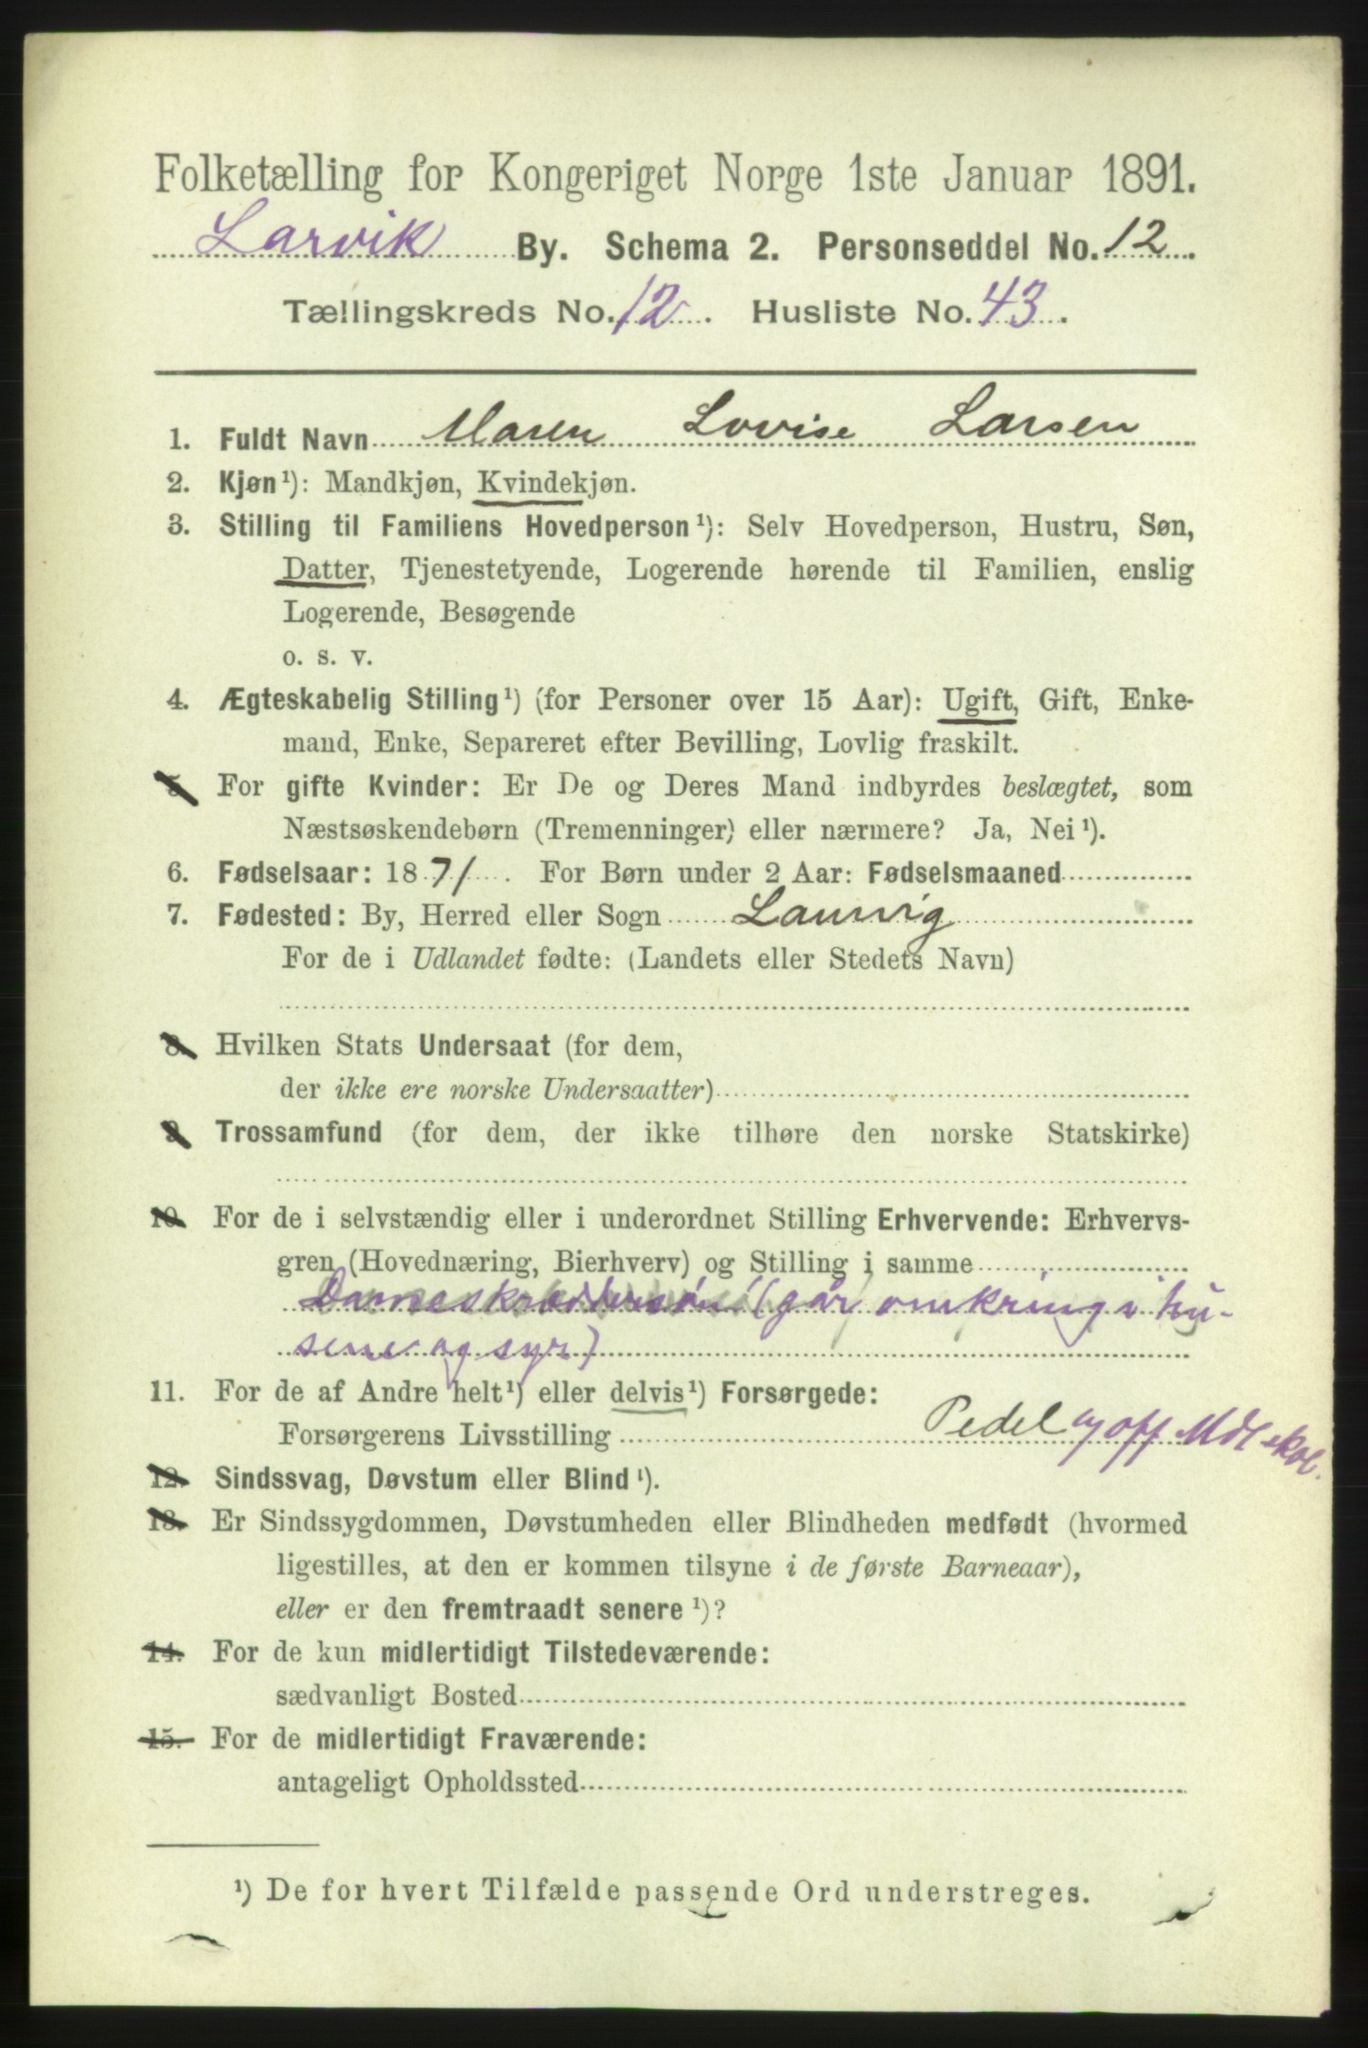 Folketælling for Kongeriget Norge 1ste Januar 1891.
Larvik By. Schema 2. Personseddel No. 12.
Tællingskreds No. 12. Husliste No. 43.
1. Fuldt Navn Maren Lovise Larsen
2. Kjøn¹): Mandkjøn, Kvindekjøn.
3. Stilling til Familiens Hovedperson¹): Selv Hovedperson, Hustru, Søn,
Datter, Tjenestetyende, Logerende hørende til Familien, enslig
Logerende, Besøgende
o. s. v.
4. Ægteskabelig Stilling¹) (for Personer over 15 Aar): Ugift, Gift, Enke-
mand, Enke, Separeret efter Bevilling, Lovlig fraskilt.
5. For gifte Kvinder: Er De og Deres Mand indbyrdes beslægtet, som
Næstsøskendebørn (Tremenninger) eller nærmere? Ja, Nei¹).
6. Fødselsaar: 1871. For Børn under 2 Aar: Fødselsmaaned
7. Fødested: By, Herred eller Sogn Laurvig
For de i Udlandet fødte: (Landets eller Stedets Navn)
8. Hvilken Stats Undersaat (for dem,
der ikke ere norske Undersaatter)
9. Trossamfund (for dem, der ikke tilhøre den norske Statskirke)
10. For de i selvstændig eller i underordnet Stilling Erhvervende: Erhvervs-
gren (Hovednæring, Bierhverv) og Stilling i samme
(går omkring i hu-
sene og syr)
11. For de af Andre helt¹) eller delvis¹) Forsørgede:
Forsørgerens Livsstilling Pedel og off
12. Sindssvag, Døvstum eller Blind¹).
13. Er Sindssygdommen, Døvstumheden eller Blindheden medfødt (hvormed
ligestilles, at den er kommen tilsyne i de første Barneaar),
eller er den fremtraadt senere¹)?
14. For de kun midlertidigt Tilstedeværende:
sædvanligt Bosted
15. For de midlertidigt Fraværende:
antageligt Opholdssted
¹) De for hvert Tilfælde passende Ord understreges.